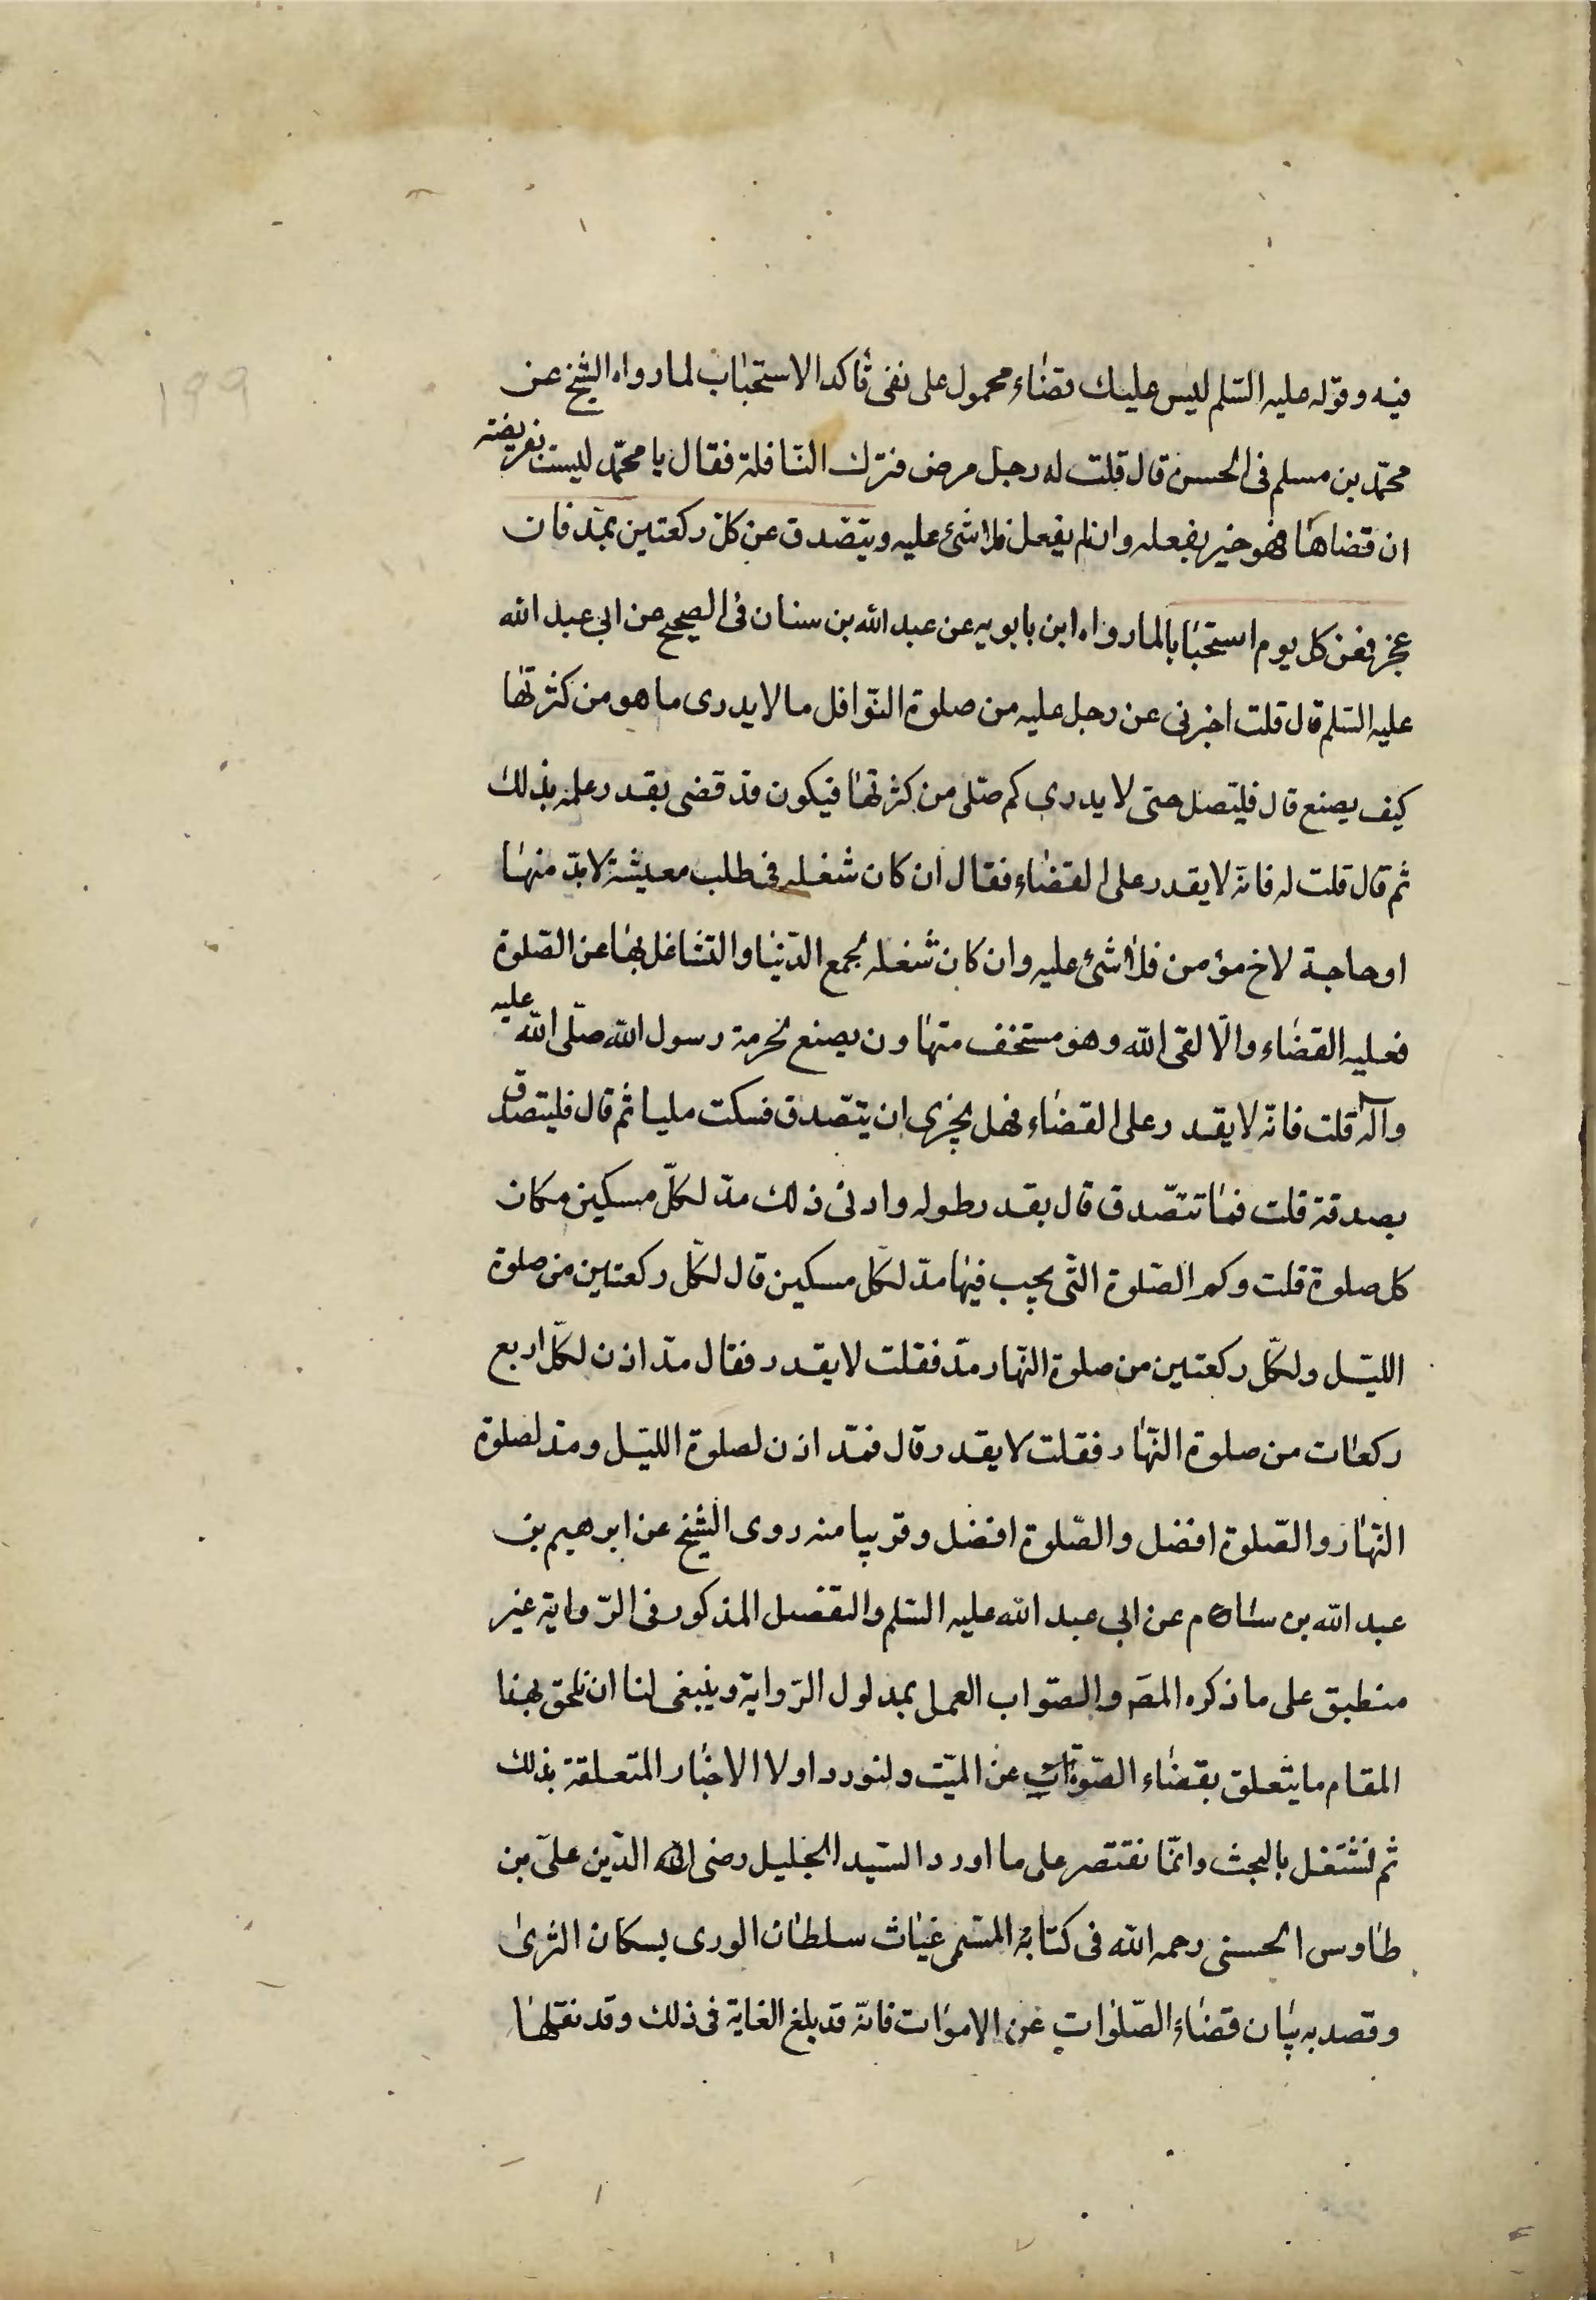 ١٩٩
فيه وقوله عليه السّلم ليس عليك قضاء محمول على نفى تأكد الاستحباب لما رواه الشيخ عن
محمّد بن مسلم فى الحسن قال قلت له رجل مرض فترك النّافلة فقال يا محمّد ليست بفريضة
ان قضاها فهو خير يفعله وان لم يفعل فلا شئ عليه ويتصّدق عن كل ركعتين بمّد فان
عجز فعن كل يوم استحبابا لما رواه ابن بابويه عن عبد الله بن سنان فى الصحيح عن ابى عبد الله
عليه السّلم قال قلت اخبرنى عن رجل عليه من صلوة النّوافل ما لا يدرى ما هو من كثرتها
كيف يصنع قال فليصّل حتى لا يدرى كم صلّى من كثرتها فيكون قد قضى بقدر علمه بذلك
ثم قال قلت له فانّه لا يقدر على القضاء فقال ان كان شغله فى طلب معيشة لا بدّ منها
او حاجة لاخ مؤمن فلا شئ عليه وان كان شغله لجمع الدّنيا والتشاغل بها عن الصّلوة
فعليه القضاء والّا لقى الله وهو مستخف متهاون يصنع لحرمة رسول الله صلّى الله عليه
وآله قلت فانّه لا يقدر على القضاء فهل يجزى ان يتصّدق فسكت مليا ثم قال فليتصدق
بصدقة قلت فما تتصّدق قال بقدر طوله وادنى ذلك مدّ لكلّ مسكين مكان
كل صلوة قلت وكم الصّلوة التّى يجب فيها مدّ لكلّ مسكين قال لكلّ ركعتين من صلوة
الليّل ولكلّ ركعتين من صلوة النّهار مدّ فقلت لا يقدر فقال مدّ اذن لكلّ اربع
ركعات من صلوة النّهار فقلت لا يقدر قال فمدّ اذن لصلوة الليّل ومدّ لصلوة
النّهار والصّلوة افضل والصّلوة افضل وقريبا منه روى الشيخ عن ابرهيم بن
عبد الله بن سام عن ابى عبد الله عليه السّلم والتفصيل المذكور فى الرّواية غير
منطبق على ما ذكره المصَ والصّواب العمل بمدلول الرّواية وينبغى لنا ان نلحق بهذا
المقام ما يتعلق بقضاء الصّلوات عن الميّت ولنورد اولا الاخبار المتعلقة بذلك
ثم نشتغل بالبحث وانّما نقتصر على ما اورد السّيد الجليل رضى الله الدّين علىّ بن
طاوس الحسنى رحمه الله فى كتابه المسّمى غياث سلطان الورى بسكان الثرى
وقصد به بيان قضاء الصّلوات عن الاموات فانّه قد بلغ الغاية فى ذلك وقد نقلها